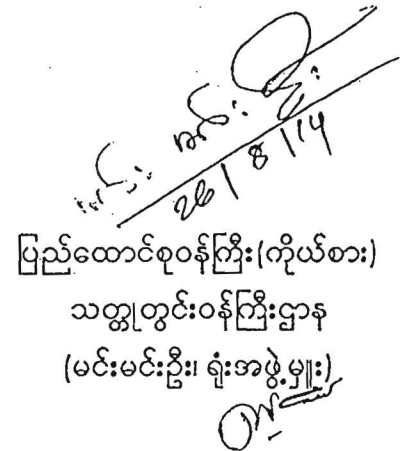 26/8/14
ပြည်ထောင်စုဝန်ကြီး(ကိုယ်စား)
သတ္တုတွင်းဝန်ကြီးဌာန
(မင်းမင်းဦး၊ ရုံးအဖွဲ့မှူး)